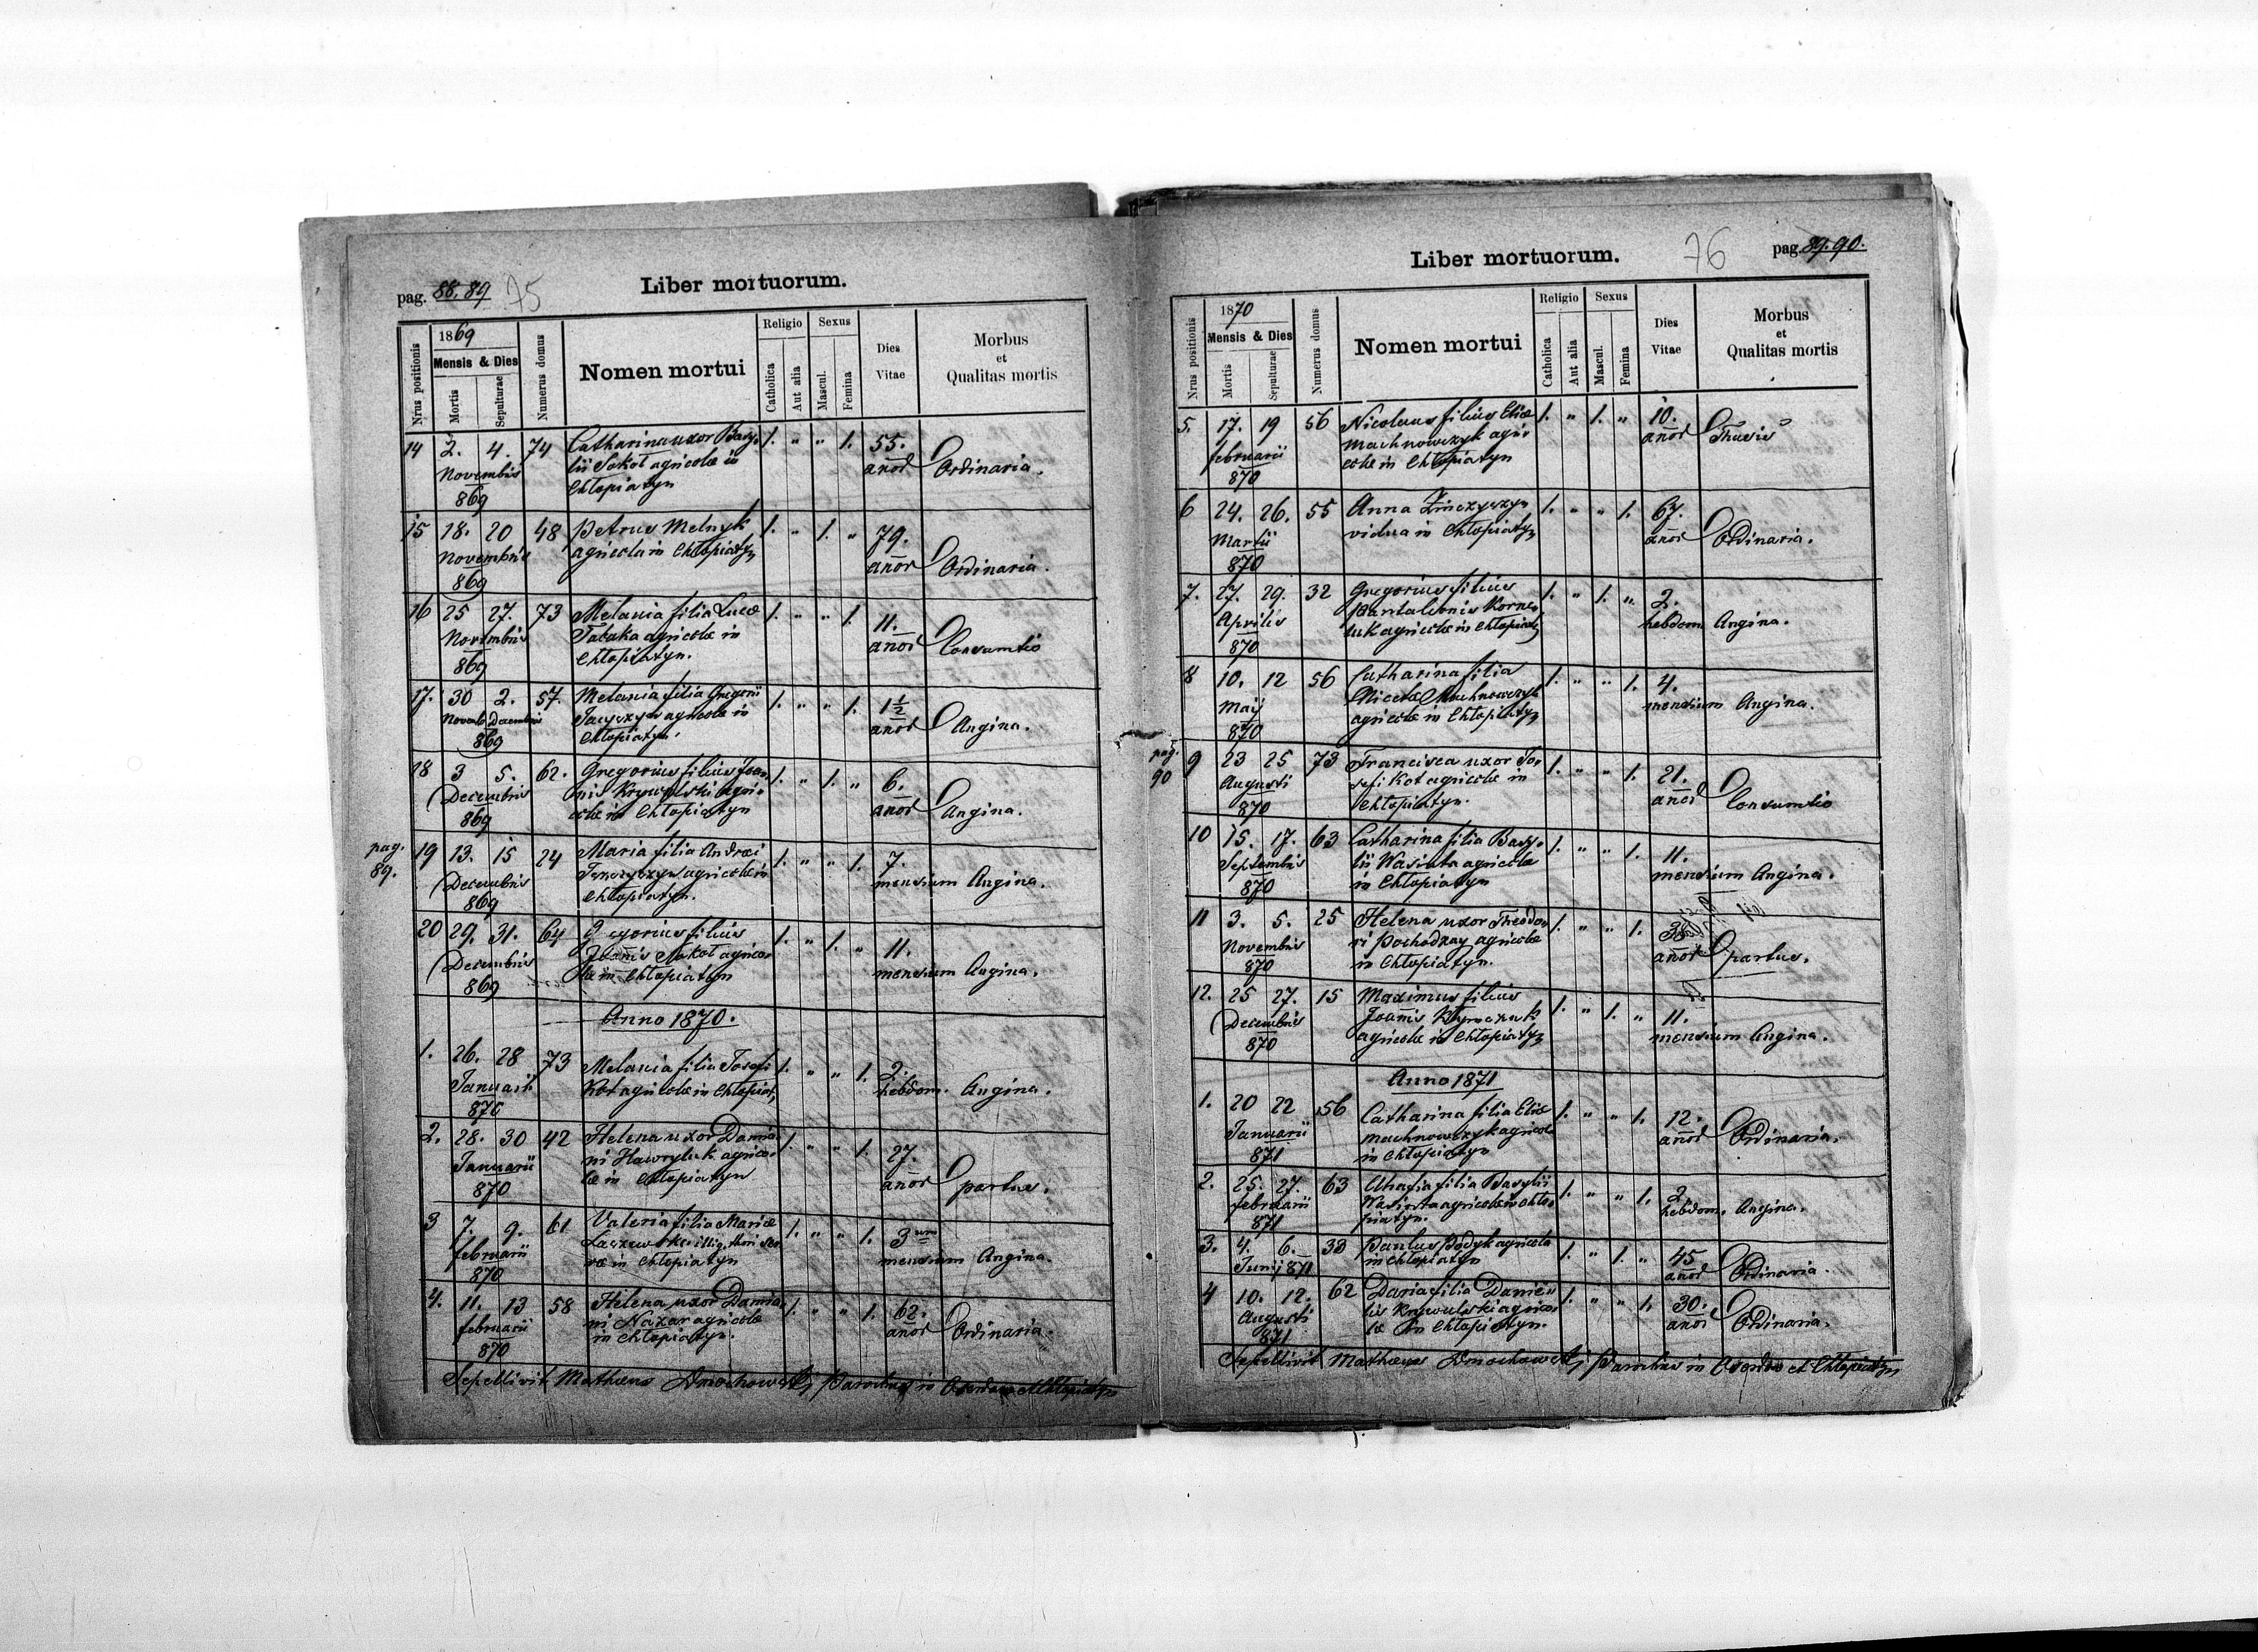 pag. 88. 89 75
Liber mortuorum.
Nrus positionis
1869
Mensis & Dies
Mortis
Sepulturae
Numerus domus
Nomen mortui
Religio
Catholica
Aut alia
Sexus
Mascul.
Femina
Dies
Vitae
Morbus
et
Qualitas mortis
14 2. 4. 74 Catharina uxor Basy- 1. " " 1. 55.
Novembris lii Sokoł agricolæ in anor Ordinaria.
869 Chłopiatyn
15 18. 20 48 Petrus Melnyk 1. " 1. " 79.
Novembris agricola in Chłopiatyn anor Ordinaria.
869
16 25 27. 73 Melania filia Lucæ 1. " " 1. 11.
Novembris Tabaka agricolæ in anor Consumtio
869 Chłopiatyn.
17. 30 2. 57. Melania filia Gregorii 1. " " 1. 1½
Novemb Decembris agricolæ in anor Angina.
869 Chłopiatyn.
18 3 5. 62. Gregorius filius Joan- 1. " 1. " 6.
Decembris nis Krywulski agri- anor Angina.
869 colæ in Chłopiatyn
pag.
89.
19 13. 15 24 Maria filia Andreæ 1. " " 1. 7.
Decembris agricolæ in mensium Angina.
869 Chłopiatyn.
20 29. 31. 64 Gregorius filius 1. " 1. " 11.
Decembris Joanis Sokoł agrico- mensium Angina.
869 læ in Chłopiatyn
Anno 1870.
1. 26. 28 73 Melania filia Josefi 1. " " 1. 2.
Januarii Kot agricolæ in Chłopiat, hebdom. Angina.
870
2. 28. 30 42 Helena uxor Damia- 1. " " 1. 27.
Januarii ni Hawryluk agrico- anor partus.
870 læ in Chłopiatyn
3 7. 9. 61 Valeria filia Mariæ 1. " " 1. 3
februarii illig. thori in mensium Angina.
870 Chłopiatyn
4. 11. 13 58 Helena uxor Damia- 1. " " 1. 62.
februarii ni Nazar agricolæ anor Ordinaria.
870 in Chłopiatyn.
Sepellivit Mathæus Dmochowski, Parochus in Oserdow et Chłopiatyn
Liber mortuorum.
76 pag. 89. 90.
Nrus positionis
1870
Mensis & Dies
Mortis
Sepulturae
Numerus domus
Nomen mortui
Religio
Catholica
Aut alia
Sexus
Mascul.
Femina
Dies
Vitae
Morbus
et
Qualitas mortis
5. 17. 19 56 Nicolaus filius Eliæ 1. " 1. " 10.
februarii Machnowczyk agri- anor
870 colæ in Chłopiatyn
6 24. 26. 55 Anna 1. " " 1. 67.
Martii vidua in Chłopiatyn anor Ordinaria.
870
7. 27. 29. 32 Gregorius filius 1. " 1. " 2.
Aprilis Pantaleonis Korne- hebdom Angina.
870 luk agricolæ in Chłopiat
8 10. 12 56 Catharina filia 1. " " 1. 4.
Maij Machnowczyk mensium Angina.
870 agricolæ in Chłopiatyn
pag.
90
9 23 25 73 Francisca uxor Jo- 1. " " 1. 21.
Augusti sefi Kot agricolæ in anor Consumtio
870 Chłopiatyn.
10 15. 17. 63 Catharina filia Basy- 1. " " 1. 11.
Septembris lii Wasiuta agricolæ mensium Angina.
870 in Chłopiatyn
11 3. 5. 25 Helena uxor Theodo- 1. " " 1. 38
Novembris ri Pochodzay agricolæ anor partus.
870 in Chłopiatyn.
12. 25 27. 15 Maximus filius 1. " 1. " 11.
Decembris Joanis mensium Angina.
870 agricolæ in Chłopiatyn
Anno 1871
1. 20 22 56 Catharina filia Eliæ 1. " " 1. 12.
Januarii Machnowczyk agricolæ anor Ordinaria.
871 in Chłopiatyn
2. 25. 27. 63 Ahafia filia Basylii 1. " " 1. 2
februarii Wasiuta agricolæ in Chło- hebdom. Angina.
871 piatyn.
3. 4. 6. 33 Paulus Dydyk agricola 1. " 1. " 45
Junij 871 in Chłopiatyn anor Ordinaria.
4 10. 12. 62 Daria filia Danie- 1. " " 1. 30.
Augusti lis Krywulski agrico- anor Ordinaria.
871 læ in Chłopiatyn.
Sepellivit Mathæus Dmochowski, Parochus in Oserdow et Chłopiatyn